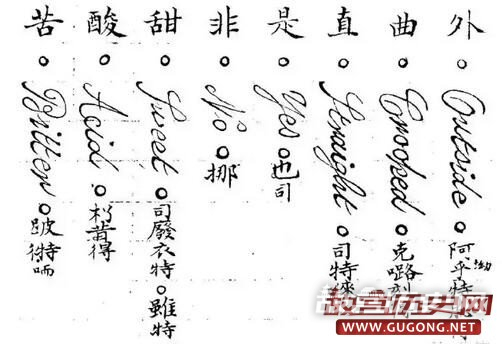 外 Outside
曲 Crooked 克
直 Straight 司特
是 Yes 也司
非 No 挪
甜 Sweet 司廢衣特 雖特
酸 Acid 昔得
苦 Bitter
故宫历史网
WWW.GUGONG.NET